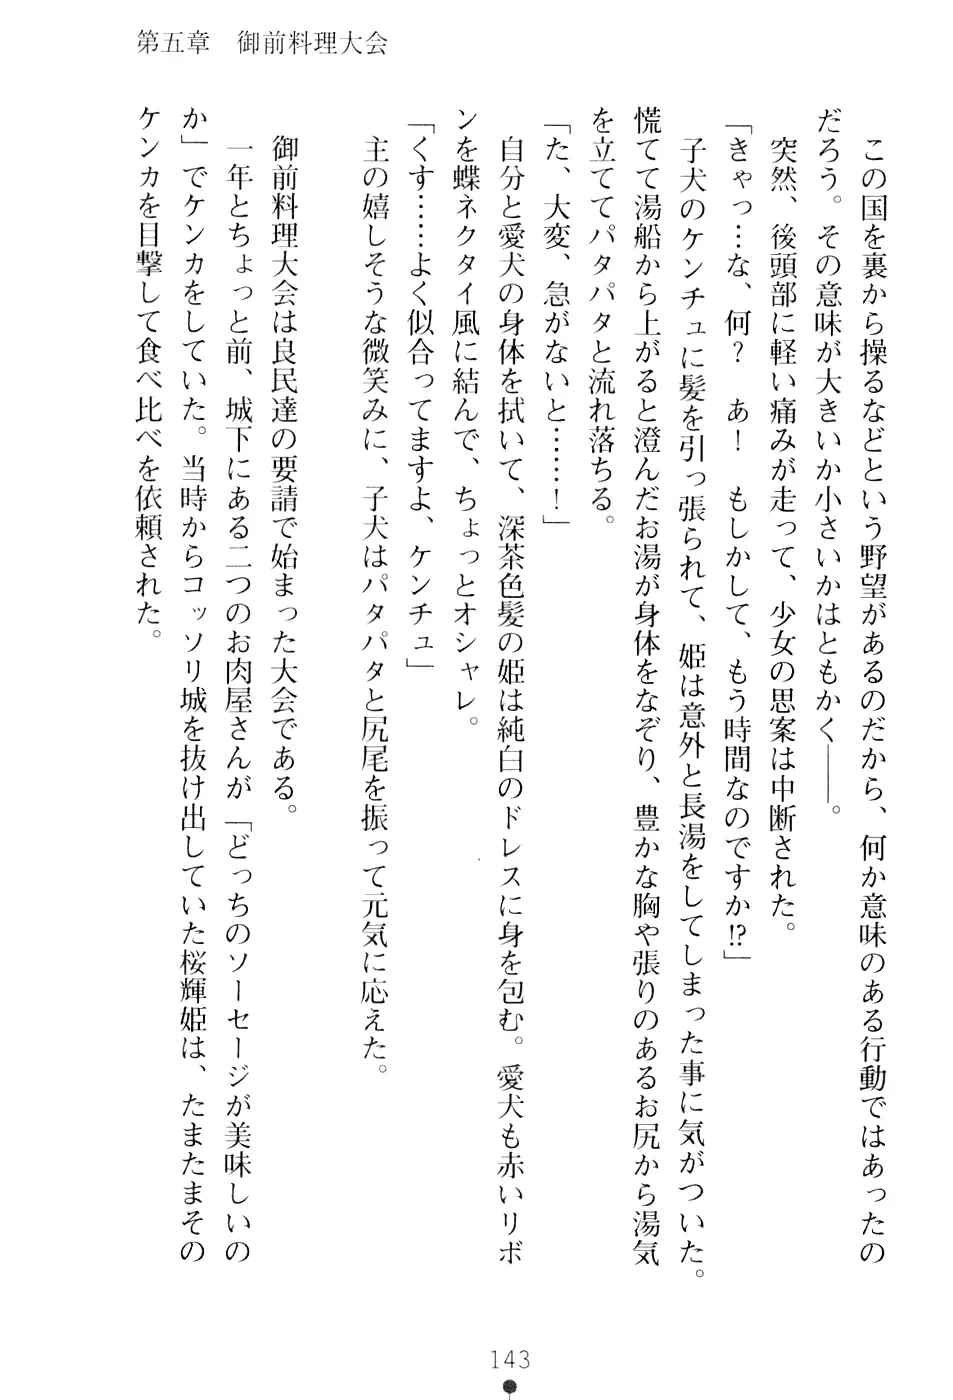 第五章　御前料理大会
　この国を裏から操るなどという野望があるのだから、何か意味のある行動ではあったの
だろう。その意味が大きいか小さいかはともかく――。
　突然、後頭部に軽い痛みが走って、少女の思案は中断された。
「きゃっ…な、何？　あ！　もしかして、もう時間なのですか!?」
　子犬のケンチュに髪を引っ張られて、姫は意外と長湯をしてしまった事に気がついた。
慌てて湯船から上がると澄んだお湯が身体をなぞり、豊かな胸や張りのあるお尻から湯気
を立ててパタパタと流れ落ちる。
「た、大変、急がないと……！」
　自分と愛犬の身体を拭いて、深茶色髪の姫は純白のドレスに身を包む。愛犬も赤いリボ
ンを蝶ネクタイ風に結んで、ちょっとオシャレ。
「くす……よく似合ってますよ、ケンチュ」
　主の嬉しそうな微笑みに、子犬はパタパタと尻尾を振って元気に応えた。
　御前料理大会は良民達の要請で始まった大会である。
　一年とちょっと前、城下にある二つのお肉屋さんが「どっちのソーセージが美味しいの
か」でケンカをしていた。当時からコッソリ城を抜け出していた桜輝姫は、たまたまその
ケンカを目撃して食べ比べを依頼された。
143